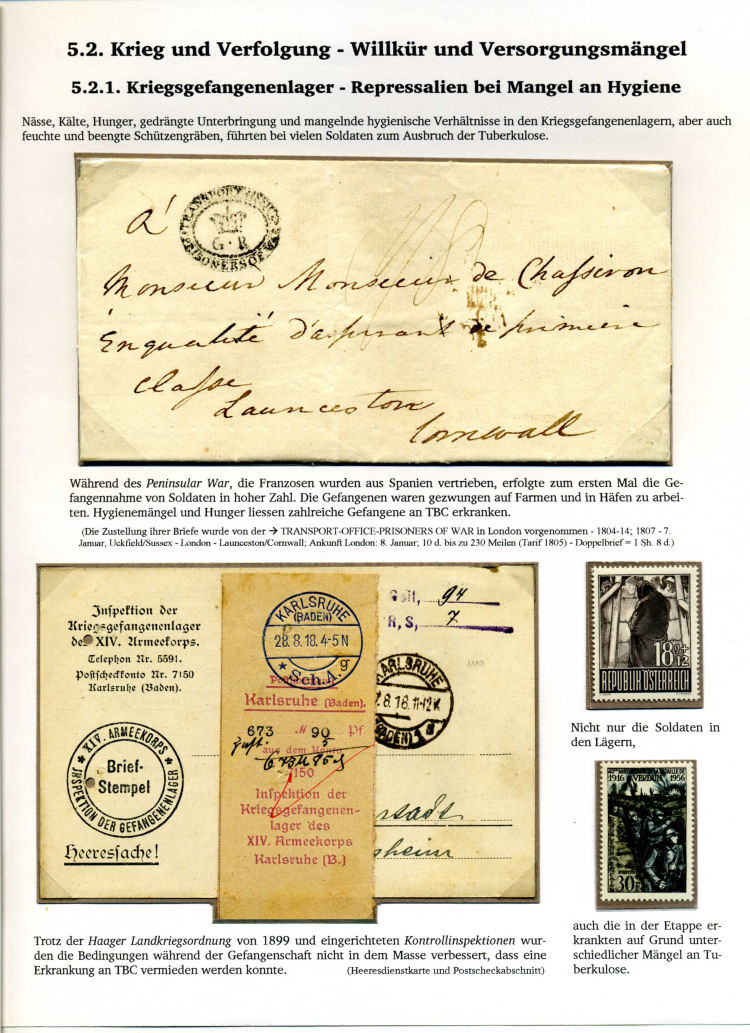 5.2. Krieg und Verfolgung - Willkür und Versorgungsmängel
5.2.1. Kriegsgefangenenlager - Repressalien bei Mangel an Hygiene
Nässe, Kälte, Hunger, gedrängte Unterbringung und mangelnde hygienische Verhältnisse in den Kriegsgefangenenlagern, aber auch
feuchte und beengte Schützengräben, führten bei vielen Soldaten zum Ausbruch der Tuberkulose.
TRANSPORT OFFICE
G·R
PRISONERS OF WAR
A'
Monsieur Monsieur de Chassiron
En qualité d'aspirant de première
Classe
Launceston
Cornwall
Während des Peninsular War, die Franzosen wurden aus Spanien vertrieben, erfolgte zum ersten Mal die Ge-
fangennahme von Soldaten in hoher Zahl. Die Gefangenen waren gezwungen auf Farmen und in Häfen zu arbei-
ten. Hygienemängel und Hunger liessen zahlreiche Gefangene an TBC erkranken.
(Die Zustellung ihrer Briefe wurde von der → TRANSPORT-OFFICE-PRISONERS OF WAR in London vorgenommen - 1804-14; 1807 - 7.
Januar, Uckfield/Sussex - London - Launceston/Cornwall; Ankunft London: 8. Januar; 10 d. bis zu 230 Meilen (Tarif 1805) - Doppelbrief = 1 Sh. 8 d.)
Inspektion der
Kriegsgefangenenlager
des XIV. Armeekorps.
Telephon Nr. 5591.
Postscheckkonto Nr. 7150
Karlsruhe (Baden).
XIV. ARMEEKORPS
Brief-
Stempel
INSPEKTION DER GEFANGENENLAGER
Heeressache!
KARLSRUHE
(BADEN)
28.8.18.4-5N
Sch.A.9
Karlsruhe (Baden).
673 M 90 Pf
aus dem Konto
7150
Inspektion der
Kriegsgefangenen-
lager des
XIV. Armeekorps
Karlsruhe (B.)
94
R, S, 7
KARLSRUHE
8.18.11-12V.
(BADEN)
stadt
sheim
18g+
12
REPUBLIK ÖSTERREICH
Nicht nur die Soldaten in
den Lägern,
40e ANNIVERSAIRE DE LA BATAILLE DE
1916 VERDUN 1956
POSTES
30F
auch die in der Etappe er-
krankten auf Grund unter-
schiedlicher Mängel an Tu-
berkulose.
Trotz der Haager Landkriegsordnung von 1899 und eingerichteten Kontrollinspektionen wur-
den die Bedingungen während der Gefangenschaft nicht in dem Masse verbessert, dass eine
Erkrankung an TBC vermieden werden konnte. (Heeresdienstkarte und Postscheckabschnitt)